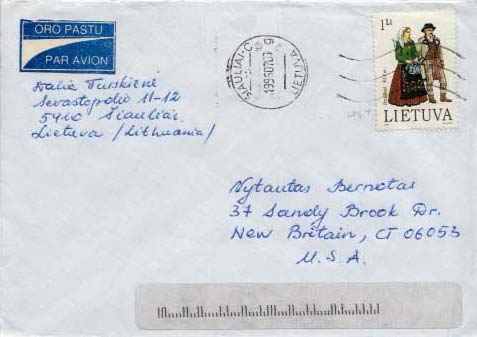 ORO PASTU
PAR AVION
Dalia Turskienė
Sevastopolio 11-12
5410 Šiauliai
Lietuva /Lithuania/
ŠIAULIAI-C
LIETUVA
1 Lt
LIETUVA
Vytautas Bernotas
37 Sandy Brook Dr.
New Britain, CT 06053
U.S.A.